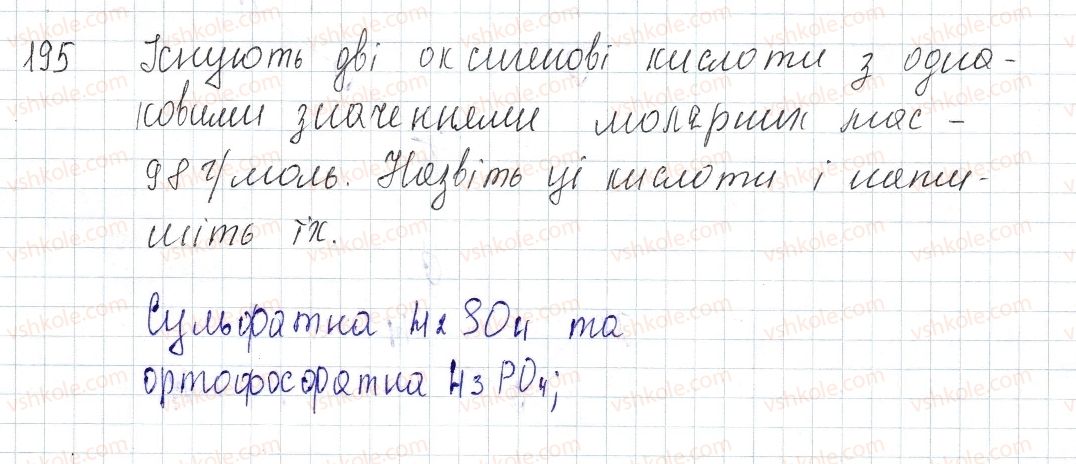 195 Існують дві оксигенові кислоти з одна-
ковими значеннями молярних мас -
98 г/моль. Назвіть ці кислоти і напи-
шіть їх.
Сульфатна H2SO4 та
ортофосфатна H3PO4;